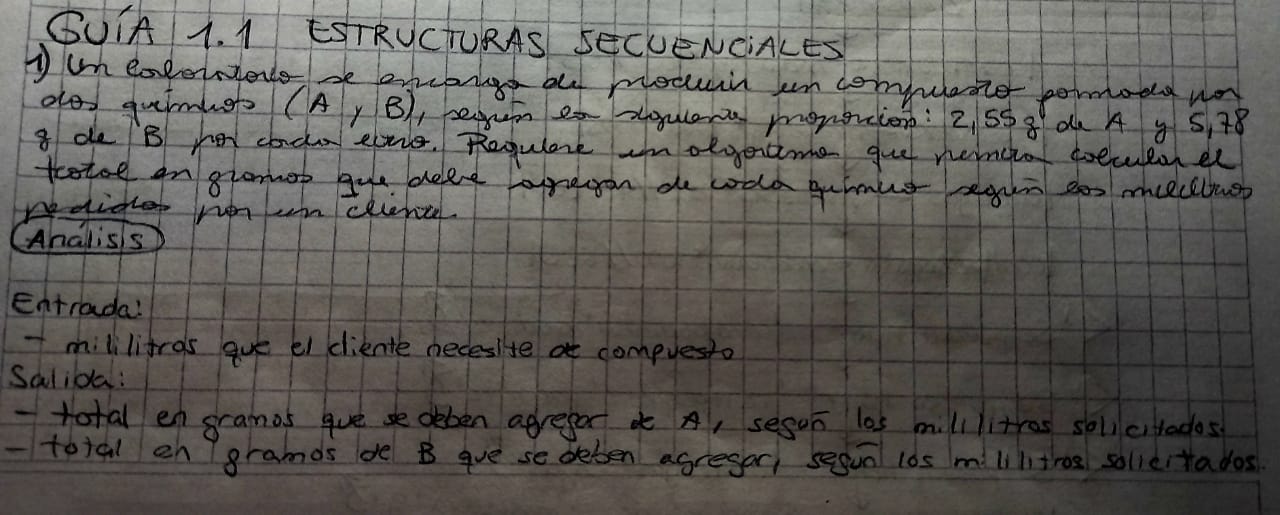 GUÍA 1.1 ESTRUCTURAS SECUENCIALES
1) Un laboratorio se encarga de producir un compuesto formado por
dos químicos (A y B), según la siguiente proporción: 2,55 g de A y 5,78
g de B por cada litro. Requiere un algoritmo que permita calcular el
total en gramos que debe agregar de cada químico según los mililitros
pedidos por un cliente.
Análisis
Entrada:
- mililitros que el cliente necesite de compuesto
Salida:
- total en gramos que se deben agregar de A, según los mililitros solicitados.
- total en gramos de B que se deben agregar, según los mililitros solicitados.